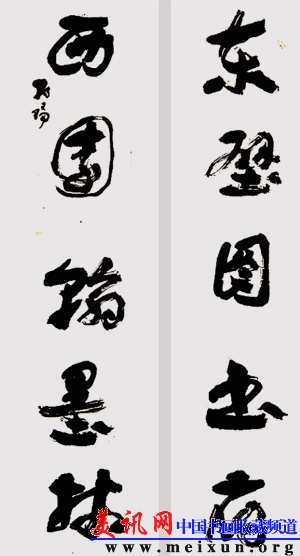 东壁图书府
西园翰墨林
美讯网 中国书画收藏频道
www.meixun.org